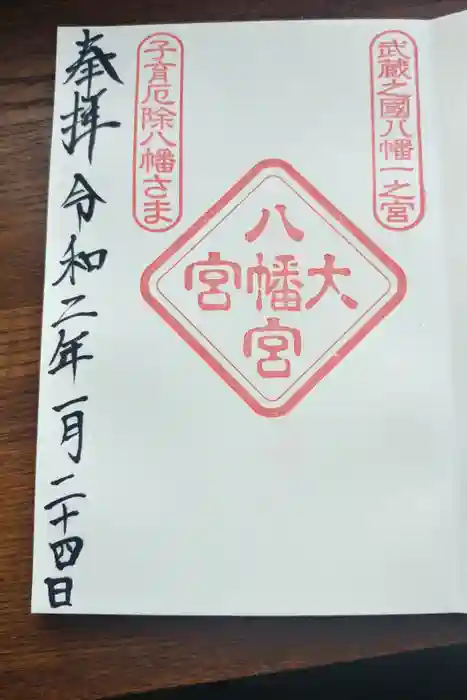 武蔵之國八幡一之宮
大宮
八幡宮
子育厄除八幡さま
奉拝 令和二年一月二十四日